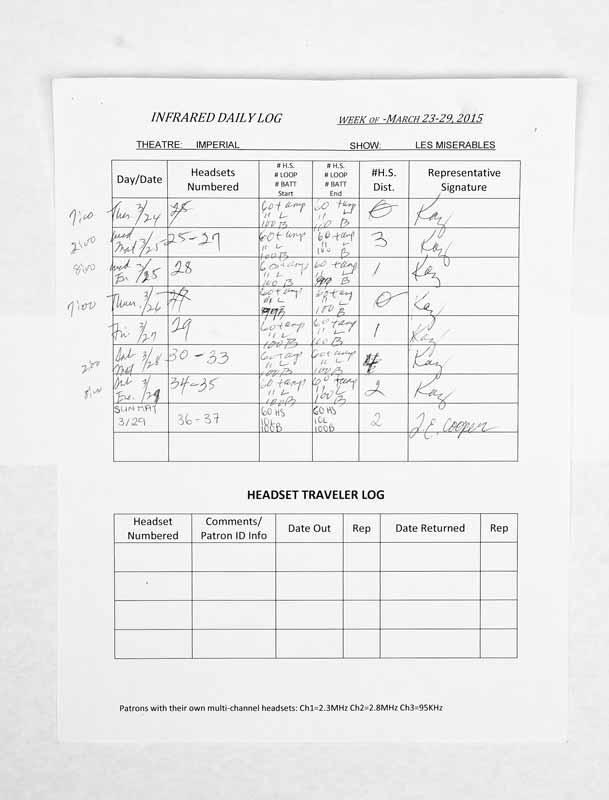 INFRARED DAILY LOG WEEK OF -MARCH 23-29, 2015
THEATRE: IMPERIAL SHOW: LES MISERABLES
Day/Date Headsets Numbered # H.S. # LOOP # BATT Start # H.S. # LOOP # BATT End #H.S. Dist. Representative Signature
7:00 Tues 3/24 25 60 + amp " L 100 B 60 + amp " L 100 B 0 Kay
2:00 Wed Mat 3/25 25-27 60 + amp " L 100 B 60 + amp " L 100 B 3 Kay
8:00 Wed Ev. 3/25 28 60 + amp " L 100 B 60 + amp " L B 1 Kay
7:00 Thur. 3/26 60 + amp " L B 60 + amp " L 100 B 0 Kay
Fri 3/27 29 60 + amp " L 100 B 60 + amp " L 100 B 1 Kay
2:00 Sat Mat 3/28 30-33 60 + amp " L 100 B 60 + amp " L 100 B 4 Kay
8:00 Sat Eve. 34-35 60 + amp " L 100 B 60 + amp " L 100 B 2 Kay
SUN MAT 3/29 36-37 60 HS 10L 100B 60 HS 10L 100B 2 J.E. Cooper
HEADSET TRAVELER LOG
Headset Numbered Comments/ Patron ID Info Date Out Rep Date Returned Rep
Patrons with their own multi-channel headsets: Ch1=2.3MHz Ch2=2.8MHz Ch3=95KHz